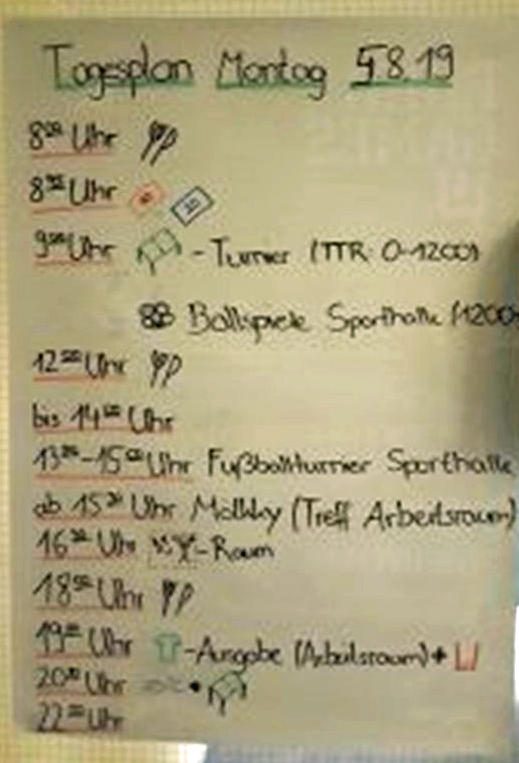 Tagesplan Montag 5.8.19
8 Uhr
8 Uhr
9 Uhr - Turnier (TTR 0-1200)
Ballspiele Sporthalle (1200
12 Uhr
bis 14 Uhr
13 - 15 Uhr Fußballturnier Sporthalle
ab 15 Uhr Mölkky (Treff Arbeitsraum)
16 Uhr - Raum
18 Uhr
19 Uhr -Ausgabe (Arbeitsraum) +
20 Uhr +
22 Uhr